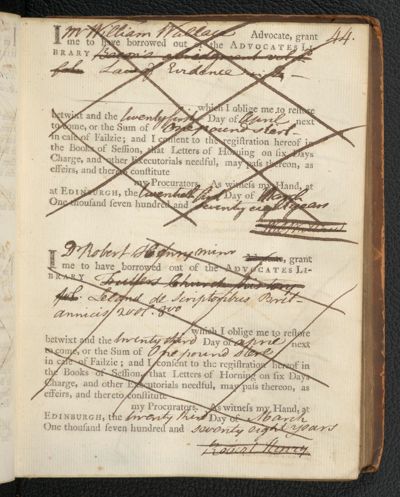 44.
I Mr William Wallace Advocate, grant
me to have borrowed out of the ADVOCATES LI-
BRARY
fol. Law of Evidence
which I oblige me to restore
betwixt and the twenty first Day of April next
to come, or the Sum of One pound sterl.
in case of Failzie; and I consent to the registration hereof in
the Books of Session, that Letters of Horning on six Days
Charge, and other Executorials needful, may pass thereon, as
effeirs, and thereto constitute
my Procurators. As witness my Hand, at
at EDINBURGH, the Day of March
One thousand seven hundred and seventy eight years
I Dr Robert Henry minr , grant
me to have borrowed out of the ADVOCATES LI-
BRARY Fullers Church history
fol. Leland de Scriptoribus Brit-
annicis 2 vol. 8vo
which I oblige me to restore
betwixt and the twenty third Day of April next
to come, or the Sum of One pound sterl.
in case of Failzie; and I consent to the registration hereof in
the Books of Session, that Letters of Horning on six Days
Charge, and other Executorials needful, may pass thereon, as
effeirs, and thereto constitute
my Procurators. As witness my Hand, at
EDINBURGH, the twenty third Day of March
One thousand seven hundred and seventy eight years
Robert Henry